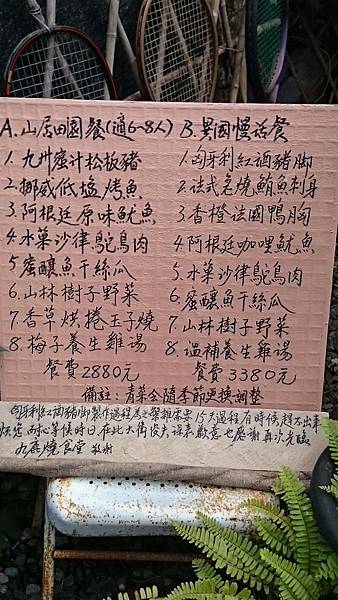 A.山居田園餐(適6~8人)
1.九州蜜汁松板豬
2.挪威低塩烤魚
3.阿根廷原味魷魚
4.水菓沙律鴕鳥肉
5.蜜釀魚干絲瓜
6.山林樹子野菜
7.香草烘捲玉子燒
8.梅子養生雞湯
餐費2880元
B.異國慢活餐
1.匈牙利紅酒豬脚
2.法式炙燒鮪魚刺身
3.香橙法國鴨胸
4.阿根廷咖哩魷魚
5.水菓沙律鴕鳥肉
6.蜜釀魚干絲瓜
7.山林樹子野菜
8.溫補養生雞湯
餐費3380元
備註:青菜会隨季節更換調整
匈牙利紅酒豬脚製作過程為之繁雜 15天過程有時候趕不出來
耐心等候時日,在此大衛 歉意也感謝再次光臨
燒食堂 敬謝